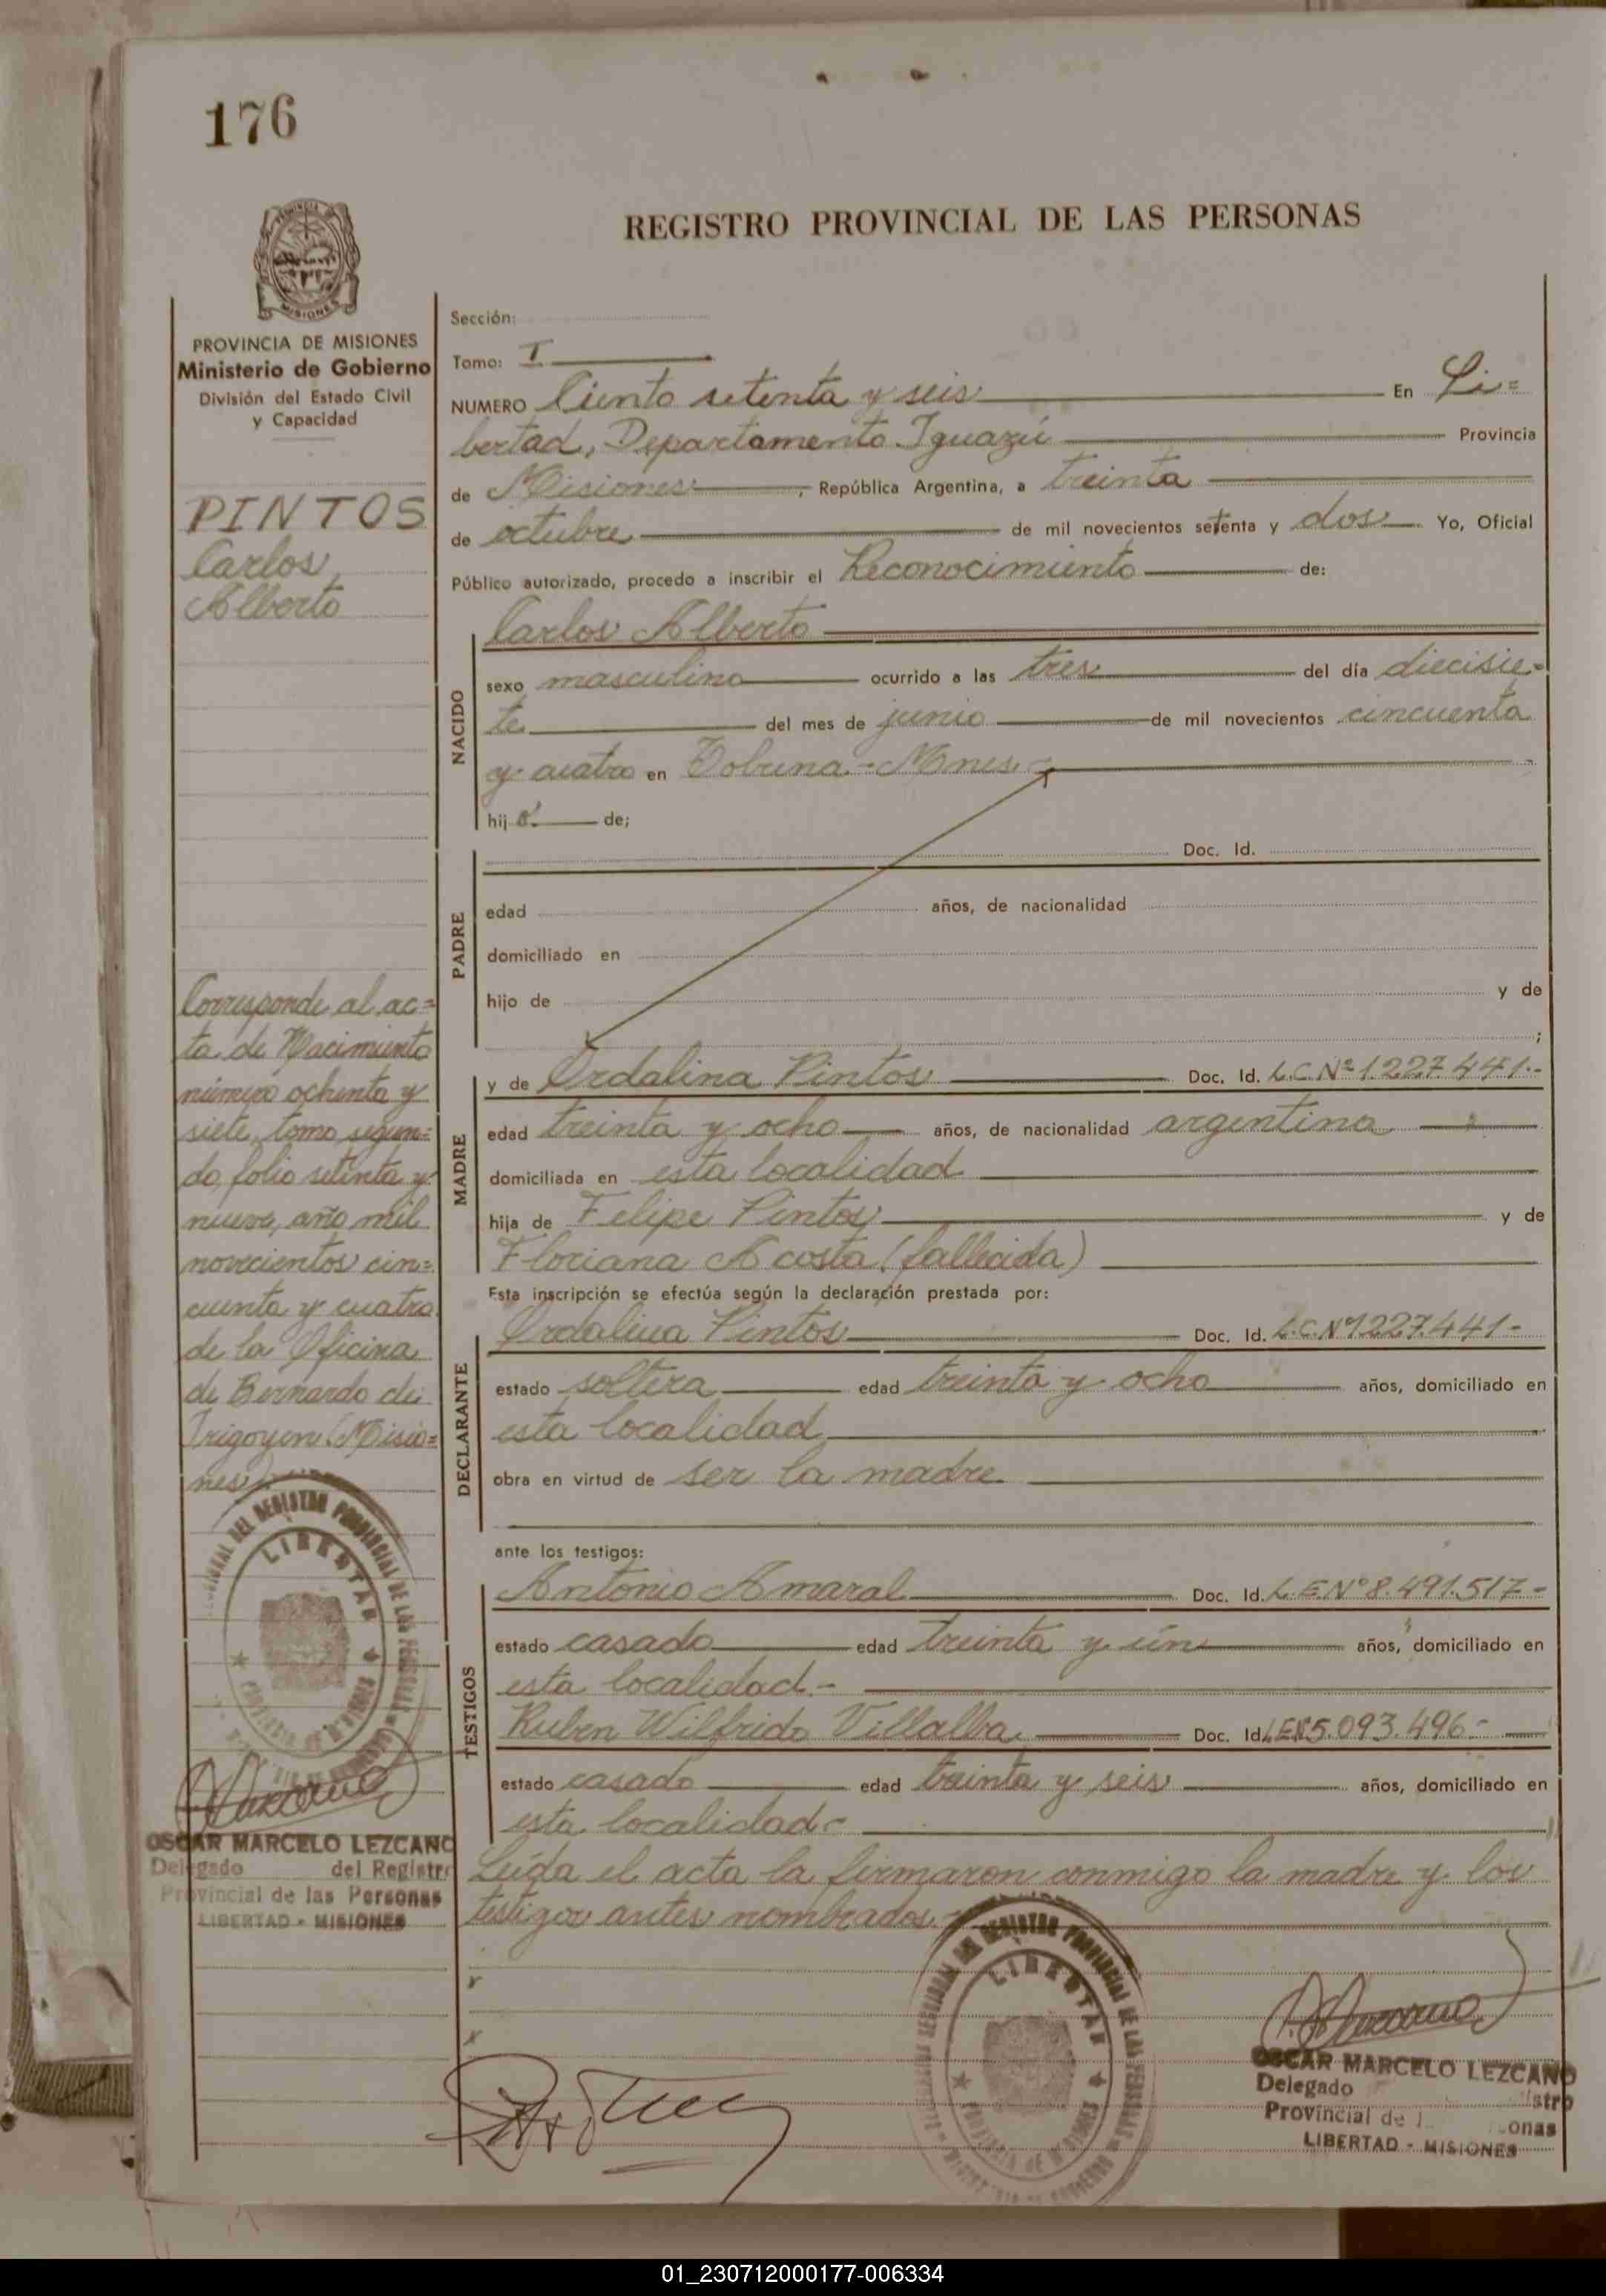 176
REGISTRO PROVINCIAL DE LAS PERSONAS
MISIONES
PROVINCIA DE MISIONES
Ministerio de Gobierno
División del Estado Civil
y Capacidad
PINTOS
Carlos
Alberto
Corresponde al ac=
ta de Nacimiento
número ochenta y
siete, tomo segun=
do, folio setenta y
nueve, año mil
novecientos cin=
cuenta y cuatro
de la Oficina
de Bernardo de
Irigoyen (Misio=
nes)
LIBERTAD
OSCAR MARCELO LEZCANO
Delegado del Registro
Provincial de las Personas
LIBERTAD - MISIONES
Sección:
Tomo: I
NUMERO Ciento setenta y seis En Li=
bertad, Departamento Iguazú Provincia
de Misiones, República Argentina, a treinta
de octubre de mil novecientos setenta y dos Yo, Oficial
Público autorizado, procedo a inscribir el Reconocimiento de:
NACIDO
Carlos Alberto
sexo masculino ocurrido a las tres del día diecisie=
te del mes de junio de mil novecientos cincuenta
y cuatro en Tobuna - Mnes -
hijo de;
PADRE
Doc. Id.
edad años, de nacionalidad
domiciliado en
hijo de y de
;
MADRE
y de Ordalina Pintos Doc. Id. L.C. Nº 1.227.441.-
edad treinta y ocho años, de nacionalidad argentina
domiciliada en esta localidad
hija de Felipe Pintos y de
Floriana Acosta (fallecida)
Esta inscripción se efectúa según la declaración prestada por:
DECLARANTE
Ordalina Pintos Doc. Id. L.C. Nº 1.227.441-
estado soltera edad treinta y ocho años, domiciliado en
esta localidad
obra en virtud de ser la madre
ante los testigos:
TESTIGOS
Antonio Amaral Doc. Id. L.E. Nº 8.491.517-
estado casado edad treinta y un años, domiciliado en
esta localidad.-
Ruben Wilfrido Villalba Doc. Id. L.E.Nº 5.093.496-
estado casado edad treinta y seis años, domiciliado en
esta localidad-
Leída el acta la firmaron conmigo la madre y los
testigos antes nombrados.-
LIBERTAD
OSCAR MARCELO LEZCANO
Delegado
Provincial de
LIBERTAD - MISIONES
01_230712000177-006334